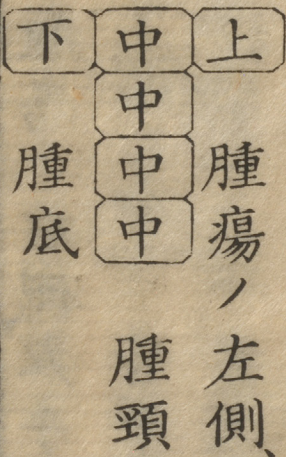 上 腫瘍ノ左側、
中中中中 腫頸
下 腫底